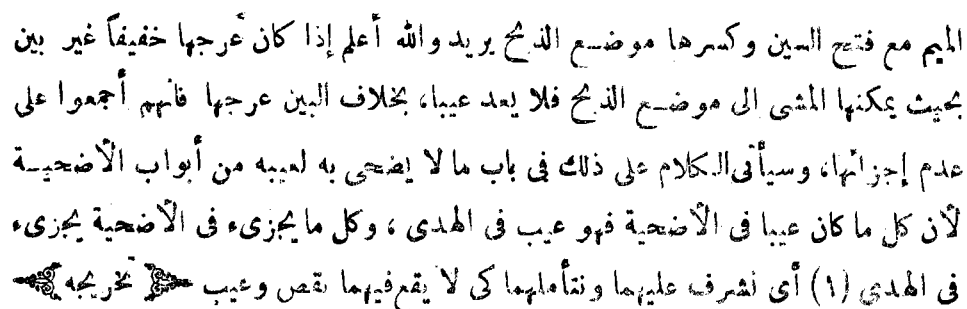 الميم مع فتح السين وكسرها موضع الذبح يريد والله أعلم إذا كان عرجها خفيفاً غير بين
بحيث يمكنها المشى الى موضع الذبح فلا يعد عيبا، بخلاف البين عرجها فانهم أجمعوا على
عدم إجزائها، وسيأتى الكلام على ذلك فى باب ما لا يضحى به لعيبه من أبواب الأضحية
لأن كل ما كان عيبا فى الأضحية فهو عيب فى الهدى ، وكل ما يجزىء فى الأضحية يجزىء
فى الهدى (١) أى نشرف عليهما ونتأملهما كى لا يقع فيهما نقص وعيب تخريجه